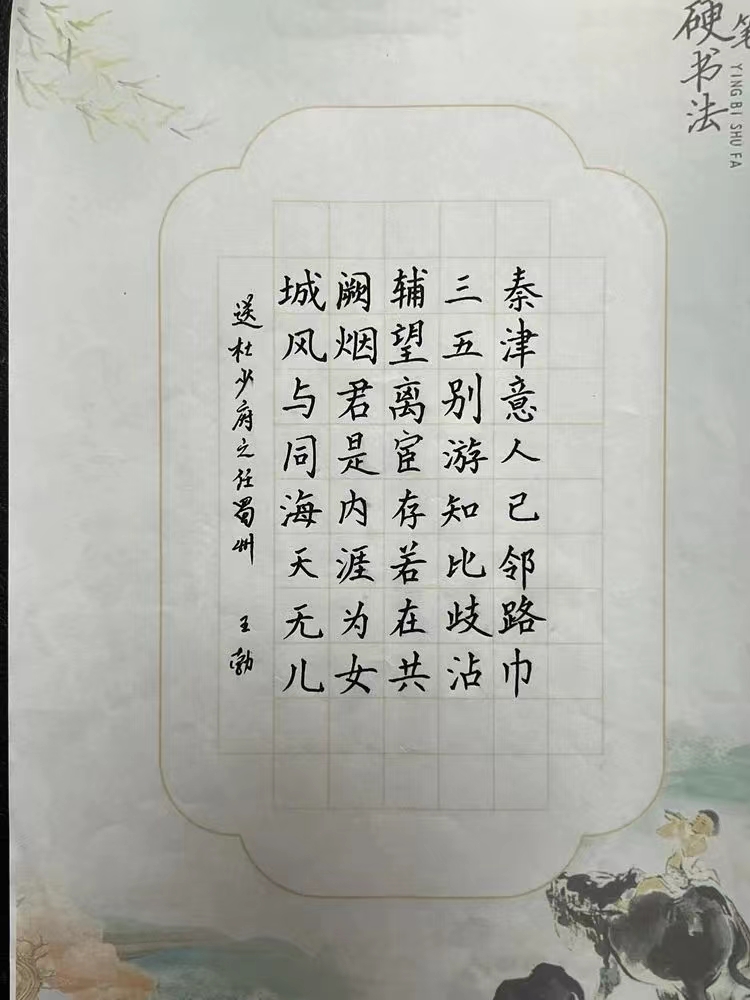 硬笔书法
YING BI SHU FA
城阙辅三秦
风烟望五津
与君离别意
同是宦游人
海内存知己
天涯若比邻
无为在歧路
儿女共沾巾
送杜少府之任蜀州 王勃